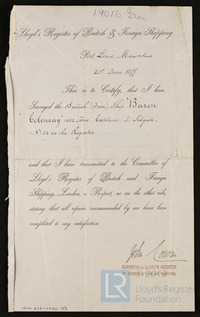 19016 Iron
Lloyd's Register of British & Foreign Shipping.
Port Louis Mauritius
21st June 1877
This is to Certify, that I have
Surveyed the British (Iron) Ship "Baron
Colonsay" Tons Captain
in the Register
and that I have transmitted to the Committee of
Lloyd's Register of British and Foreign
Shipping, London, a Report, as on the other side,
stating that all repairs recommended by me have been
completed to my satisfaction.
John
SURVEYOR TO LLOYD'S REGISTER
OF BRITISH & FOREIGN SHIPPING
Lloyd's Register
Foundation